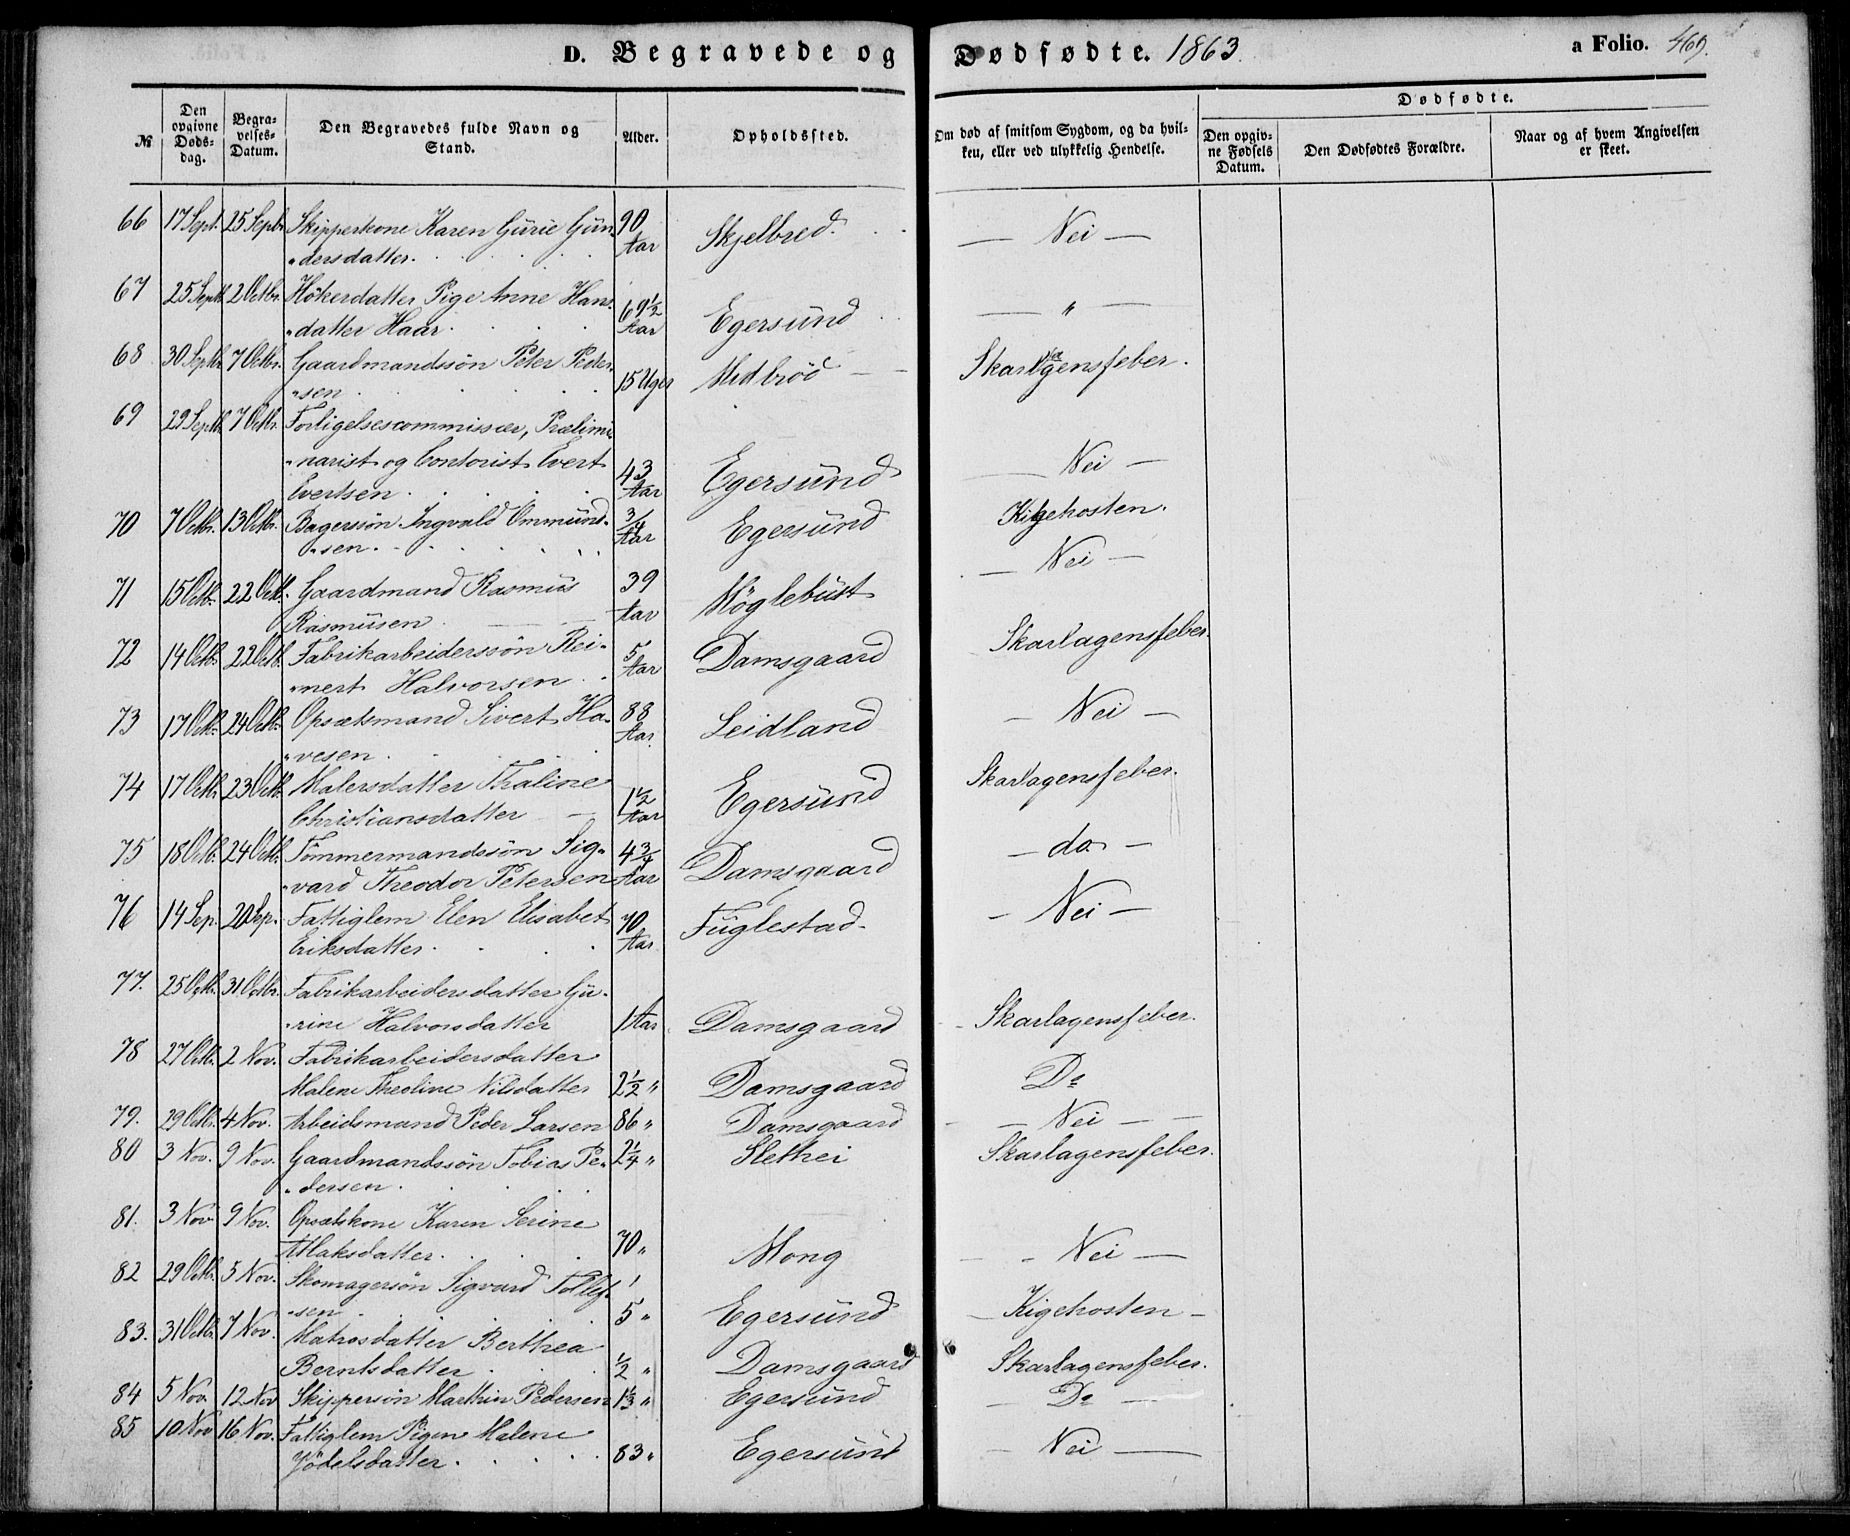 D. Begravede og Dødfødte. 1863. a Folio. 469.
№ | Den opgivne Døds-dag. | Begra-velses-Datum. | Den Begravedes fulde Navn og Stand. | Alder. | Opholdssted. | Om død af smitsom Sygdom, og da hvil-ken, eller ved ulykkelig Hendelse. | Dødfødte. | Den opgiv-ne Fødsels Datum. | Den Dødfødtes Forældre. | Naar og af hvem Angivelsen er skeet.
66 17 Sept. 25 Septbr Skipperkone Karen Gurie Gun- 90
"dersdatter. Aar Skjelbred. — Nei —
67 25 Septb. 2 Octbr. Høkerdatter Pige Anne Hans- 69½
"datter Haar. Aar Egersund — " —
68 30 Septbr 7 Octbr. Gaardmandssøn Peter Peder-
"sen 15 Uger Midbrød — Skarlagensfeber.
69 29 Septb. 7 Octbr. Forligelsescommissær, Prælimi-
"narist og Contorist Evert 43
Evertsen. Aar Egersund — Nei —
70 7 Octbr. 13 Octbr. Bagerssøn Ingvald Ommund- 3/4
"sen. Aar Egersund Kigehosten.
71 15 Octb. 22 Octb. Gaardmand Rasmus 39
Rasmusen Aar Møglebust — Nei —
72 14 Octb. 22 Octb. Fabrikarbeiderssøn Rei- 5
"nert Halvorsen Aar Damsgaard Skarlagensfeber.
73 17 Octb. 24 Octb. Opsætsmand Sivert Ha- 88
"vesen. Aar. Leidland — Nei —
74 17 Octb. 23 Octb. Malersdatter Thaline 1½
Christiansdatter — Aar Egersund Skarlagensfeber.
75 18 Octb. 24 Octb. Tømmermandssøn Sig- 4¾
"vard Theodor Petersen Aar Damsgaard — do —
76 14 Sep. 20 Sep. Fattiglem Elen Elisabet 70
Eriksdatter. Aar. Fuglestad. — Nei —
77. 25 Octb. 31 Octbr. Fabrikarbeidersdatter Gu-
"rine Halvorsdatter 1 Aar Damsgaard — Skarlagensfeber.
78 27 Octb. 2 Nov. Fabrikarbeidersdatter
Malene Theoline Nilsdatter 2½ " Damsgaard Do
79. 29 Octbr. 4 Nov. Arbeidsmand Peder Larsen 86 " Damsgaard — Nei —
80 3 Nov. 9 Nov. Gaardmandssøn Tobias Pe- 2¼ " Slethei Skarlagensfeber.
"dersen.
81. 3 Nov 9 Nov. Opsætskone Karen Serine
Atlaksdatter. 70 " Mong — Nei —
82 29 Octbr. 5 Nov. Skomagersøn Sigvard Tollef-
"sen 5 " Egersund — Kigehosten —
83. 31 Octbr. 7 Nov. Matrosdatter Berthea
Berntsdatter ½ " Damsgaard Skarlagensfeber.
84 5 Nov. 12 Nov Skippersøn Marthin Pedersen 1⅓ " Egersund — Do —
85 10 Nov 16 Nov. Fattiglem Pigen Malene
Jødelsdatter. 83 " Egersund — Nei —